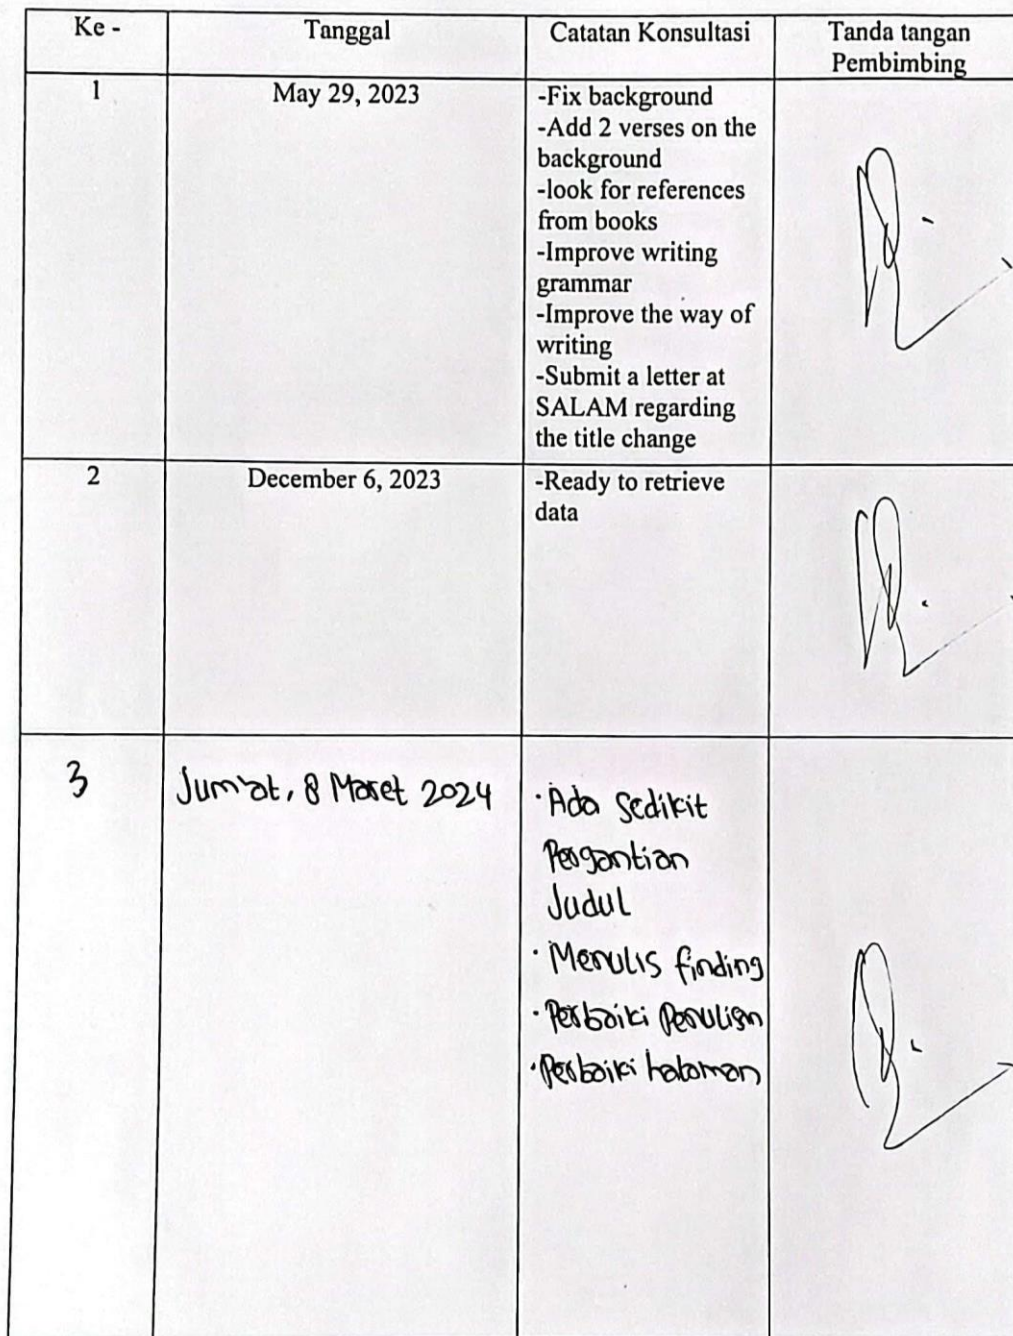 Ke -
Tanggal
Catatan Konsultasi
Tanda tangan
Pembimbing
1
May 29, 2023
-Fix background
-Add 2 verses on the
background
-look for references
from books
-Improve writing
grammar
-Improve the way of
writing
-Submit a letter at
SALAM regarding
the title change
2
December 6, 2023
-Ready to retrieve
data
3
Jum'at, 8 Maret 2024
· Ada Sedikit
Pergantian
Judul
· Menulis finding
· Perbaiki Penulisn
· Perbaiki halaman